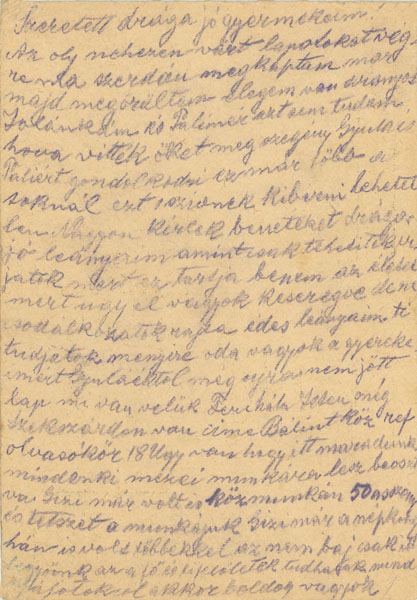 Szeretett drága jó gyermekeim!
Az oly nehezen várt lapotokat vég
re ma szerdán megkaptam már
majd megőrültem elegem van aranyos
Jolánkám és Palimér azt sem tudom
hova vitték őket meg szegény Gyula és
Paliért gondolkodni ez már több a
soknál ezt szívnek kibírni lehetet
len Nagyon kérlek benneteket drága
jó leányaim amint csak tehetitek ír
jatok mert ez tartja bennem az életet
mert úgy el vagyok keseredve ne
csodálkozzatok rajta édes leányaim ti
tudjátok menyire oda vagyok a gyereke
imért Gyuláéktól meg újra nem jött
lap mi van velük Feri hála Isten még
Szekszárdon van címe Bálint köz ref
olvasókör 18 Úgy van hogy itt maradunk
mindenki mezei munkára lesz beosz
va Gizi már volt is közmunkán 50 asszony
és tetszet a munkájuk Gizi már a népkony
hán is volt többekkel ez nem baj csak itt
az a jó Ti tudhatok mind
akkor boldog vagyok